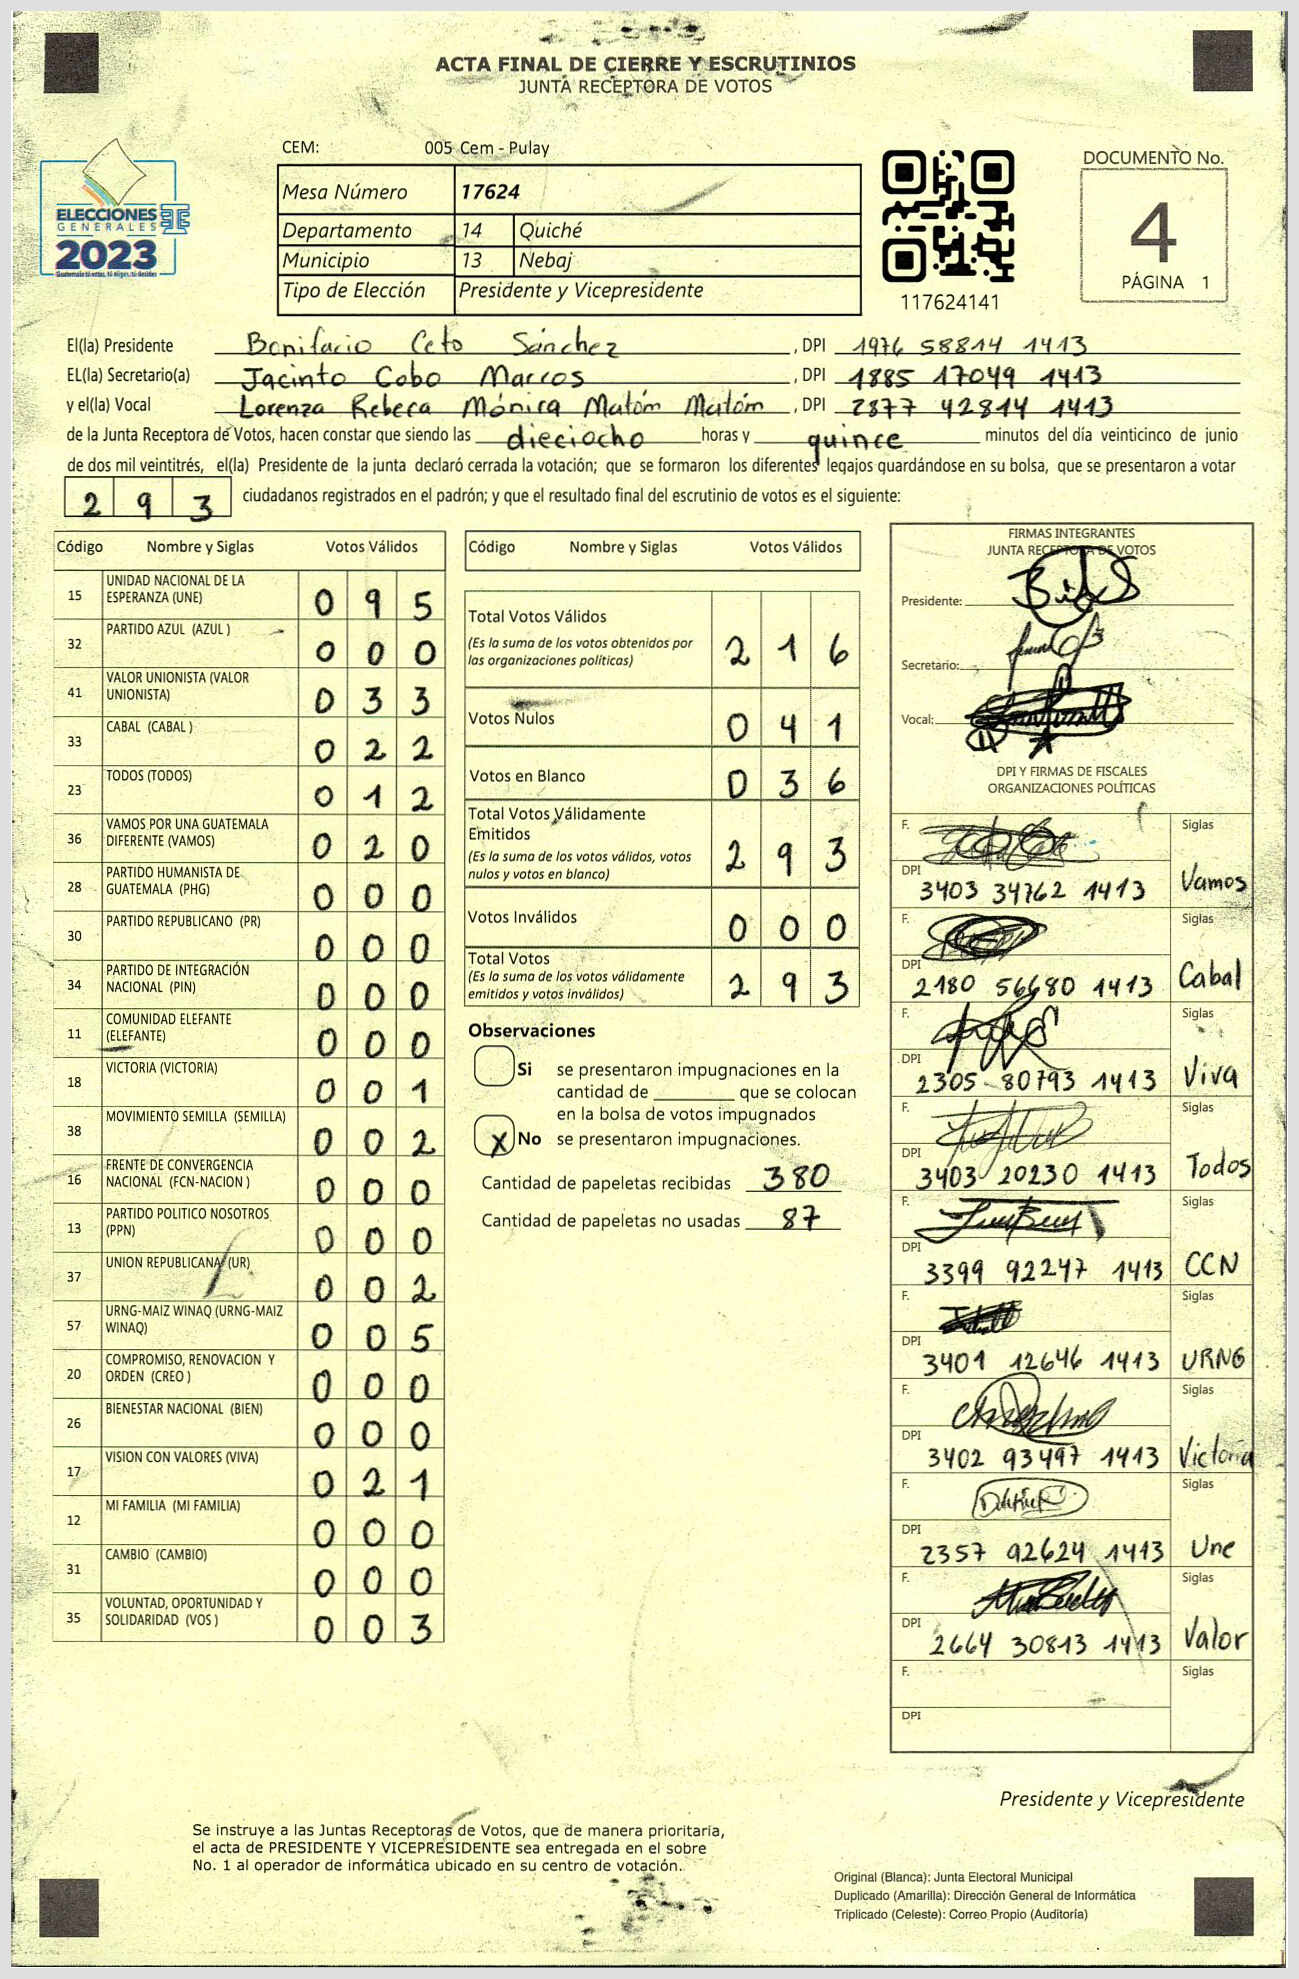 ACTA FINAL DE CIERRE Y ESCRUTINIOS
JUNTA RECEPTORA DE VOTOS
CEM: 005 Cem - Pulay
ELECCIONES
GENERALES
2023
Guatemala tú votas, tú eliges, tú decides
Mesa Número 17624
Departamento 14 Quiché
Municipio 13 Nebaj
Tipo de Elección Presidente y Vicepresidente
117624141
DOCUMENTO No.
4
PÁGINA 1
El(la) Presidente Bonifacio Ceto Sánchez , DPI 1976 58814 1413
EL(la) Secretario(a) Jacinto Cobo Marcos , DPI 1885 17049 1413
y el(la) Vocal Lorenza Rebeca Mónica Matóm Matóm , DPI 2877 42814 1413
de la Junta Receptora de Votos, hacen constar que siendo las dieciocho horas y quince minutos del día veinticinco de junio
de dos mil veintitrés, el(la) Presidente de la junta declaró cerrada la votación; que se formaron los diferentes legajos quardándose en su bolsa, que se presentaron a votar
2 9 3 ciudadanos registrados en el padrón; y que el resultado final del escrutinio de votos es el siguiente:
Código Nombre y Siglas Votos Válidos
15 UNIDAD NACIONAL DE LA
ESPERANZA (UNE) 0 9 5
32 PARTIDO AZUL (AZUL ) 0 0 0
41 VALOR UNIONISTA (VALOR
UNIONISTA) 0 3 3
33 CABAL (CABAL ) 0 2 2
23 TODOS (TODOS) 0 1 2
36 VAMOS POR UNA GUATEMALA
DIFERENTE (VAMOS) 0 2 0
28 PARTIDO HUMANISTA DE
GUATEMALA (PHG) 0 0 0
30 PARTIDO REPUBLICANO (PR) 0 0 0
34 PARTIDO DE INTEGRACIÓN
NACIONAL (PIN) 0 0 0
11 COMUNIDAD ELEFANTE
(ELEFANTE) 0 0 0
18 VICTORIA (VICTORIA) 0 0 1
38 MOVIMIENTO SEMILLA (SEMILLA) 0 0 2
16 FRENTE DE CONVERGENCIA
NACIONAL (FCN-NACION ) 0 0 0
13 PARTIDO POLITICO NOSOTROS
(PPN) 0 0 0
37 UNION REPUBLICANA (UR) 0 0 2
57 URNG-MAIZ WINAQ (URNG-MAIZ
WINAQ) 0 0 5
20 COMPROMISO, RENOVACION Y
ORDEN (CREO ) 0 0 0
26 BIENESTAR NACIONAL (BIEN) 0 0 0
17 VISION CON VALORES (VIVA) 0 2 1
12 MI FAMILIA (MI FAMILIA) 0 0 0
31 CAMBIO (CAMBIO) 0 0 0
35 VOLUNTAD, OPORTUNIDAD Y
SOLIDARIDAD (VOS ) 0 0 3
Código Nombre y Siglas Votos Válidos
Total Votos Válidos
(Es la suma de los votos obtenidos por
las organizaciones políticas) 2 1 6
Votos Nulos 0 4 1
Votos en Blanco 0 3 6
Total Votos Válidamente
Emitidos
(Es la suma de los votos válidos, votos
nulos y votos en blanco) 2 9 3
Votos Inválidos 0 0 0
Total Votos
(Es la suma de los votos válidamente
emitidos y votos inválidos) 2 9 3
Observaciones
Si se presentaron impugnaciones en la
cantidad de ________ que se colocan
en la bolsa de votos impugnados
X No se presentaron impugnaciones.
Cantidad de papeletas recibidas 380
Cantidad de papeletas no usadas 87
FIRMAS INTEGRANTES
JUNTA RECEPTORA DE VOTOS
Presidente:
Secretario:
Vocal:
DPI Y FIRMAS DE FISCALES
ORGANIZACIONES POLÍTICAS
F. Siglas
DPI 3403 34762 1413 Vamos
F. Siglas
DPI 2180 56680 1413 Cabal
F. Siglas
DPI 2305 80793 1413 Viva
F. Siglas
DPI 3403 20230 1413 Todos
F. Siglas
DPI 3399 92247 1413 CCN
F. Siglas
DPI 3401 12646 1413 URNG
F. Siglas
DPI 3402 93497 1413 Victoria
F. Siglas
DPI 2357 92624 1413 Une
F. Siglas
DPI 2664 30813 1413 Valor
F. Siglas
DPI
Presidente y Vicepresidente
Se instruye a las Juntas Receptoras de Votos, que de manera prioritaria,
el acta de PRESIDENTE Y VICEPRESIDENTE sea entregada en el sobre
No. 1 al operador de informática ubicado en su centro de votación.
Original (Blanca): Junta Electoral Municipal
Duplicado (Amarilla): Dirección General de Informática
Triplicado (Celeste): Correo Propio (Auditoría)